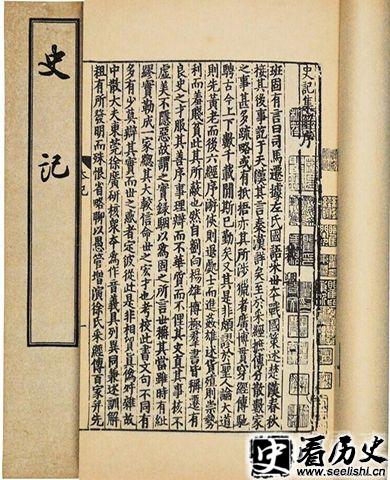 史記集解序
班固有言曰司馬遷據左氏國語采世本戰國策述楚漢春秋
接其後事訖于天漢其言秦漢詳矣至於采經摭傳分散數家
之事甚多疏略或有抵捂亦其所涉獵者廣博貫穿經傳馳
騁古今上下數千載閒斯已勤矣又其是非頗謬於聖人論大道
則先黃老而後六經序游俠則退處士而進姦雄述貨殖則崇勢
利而羞賤貧此其所蔽也然自劉向楊雄博極羣書皆稱遷有
良史之才服其善序事理辯而不華質而不俚其文直其事核不
虛美不隱惡故謂之實錄駰以為固之所言世稱其當雖時有紕
繆實勒成一家總其大較信命世之宏才也考校此書文句不同有
多有少莫辯其實而世之惑者定彼從此是非相貿真偽舛雜故
中散大夫東莞徐廣研核衆本為作音義具列異同兼述訓解
粗有所發明而殊恨省略聊以愚管增演徐氏采經傳百家并先
史記
史看历史
www.seelishi.cn